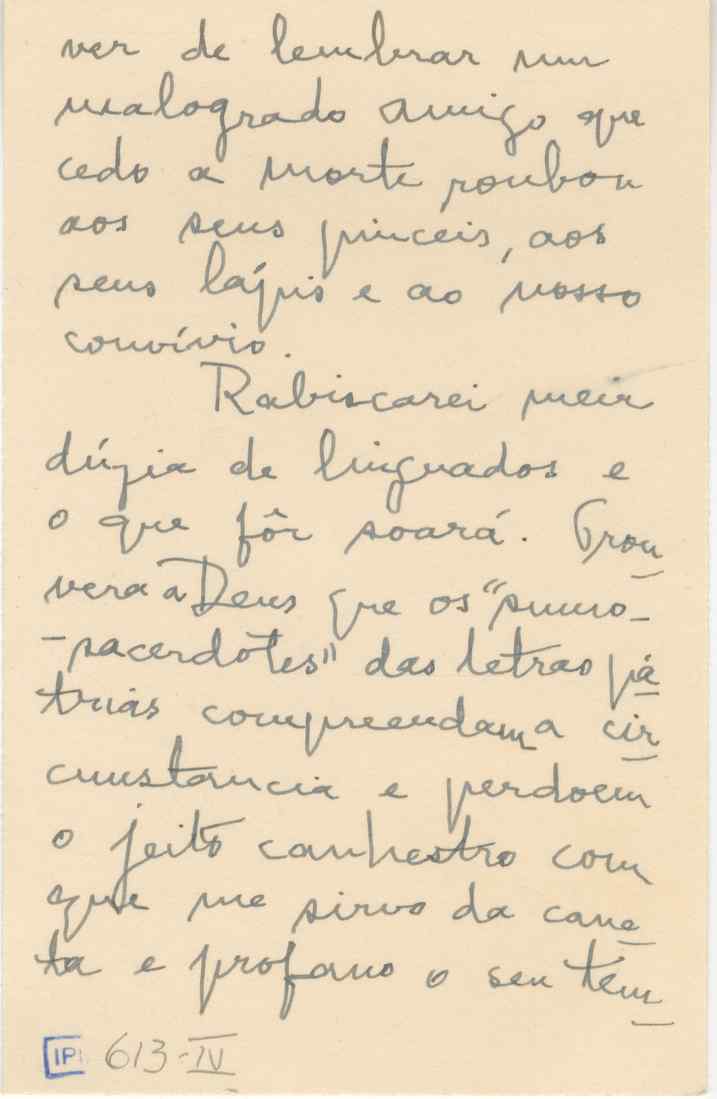 ver de lembrar um
malogrado amigo que
cedo a morte roubou
aos seus pinceis, aos
seus lápis e ao nosso
convívio.
Rabiscarei meia
dúzia de linguados e
o que fôr soará. Prou
vera a Deus que os "sumo-
-sacerdotes" das letras pá
trias compreendam a cir
cunstancia e perdoem
o jeito canhestro com
que me sirvo da cane
ta e profano o seu têm
IPI 613-IV